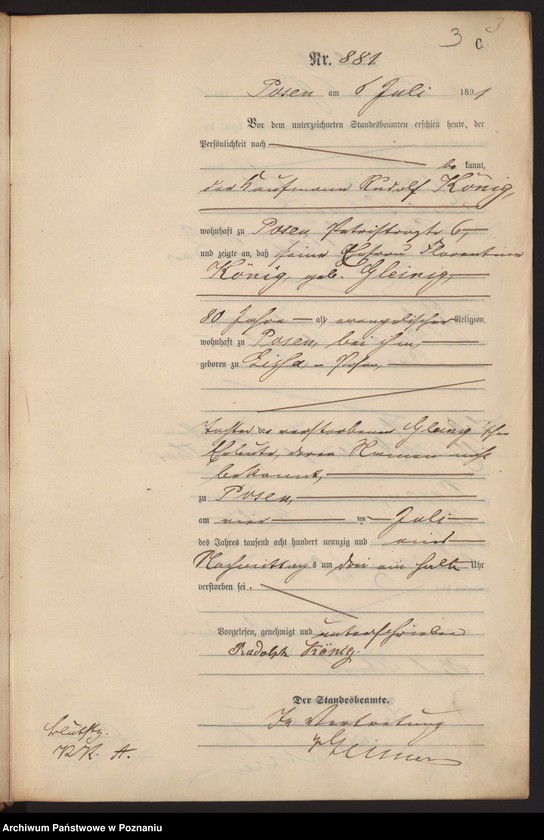 3 3
C.
Nr. 881.
Posen am 6 Juli 1891
Vor dem unterzeichneten Standesbeamten erschien heute, der
Persönlichkeit nach
be kannt,
der Kaufmann Rudolf König,
wohnhaft zu Posen, Petristraße 6,
und zeigte an, daß seine Ehefrau Florentine
König, geb. Gleinig,
80 Jahre alt evangelischer Religion,
wohnhaft zu Posen, bei ihm,
geboren zu
Tochter der verstorbenen Gleinig'schen
Eheleute, deren Namen nicht
bekannt,
zu Posen,
am vier ten Juli
des Jahres tausend acht hundert neunzig und eins
Nachmittags um drei ein halb Uhr
verstorben sei.
Vorgelesen, genehmigt und unterschrieben
Rudolph König.
Der Standesbeamte.
In Vertretung
Archiwum Państwowe w Poznaniu